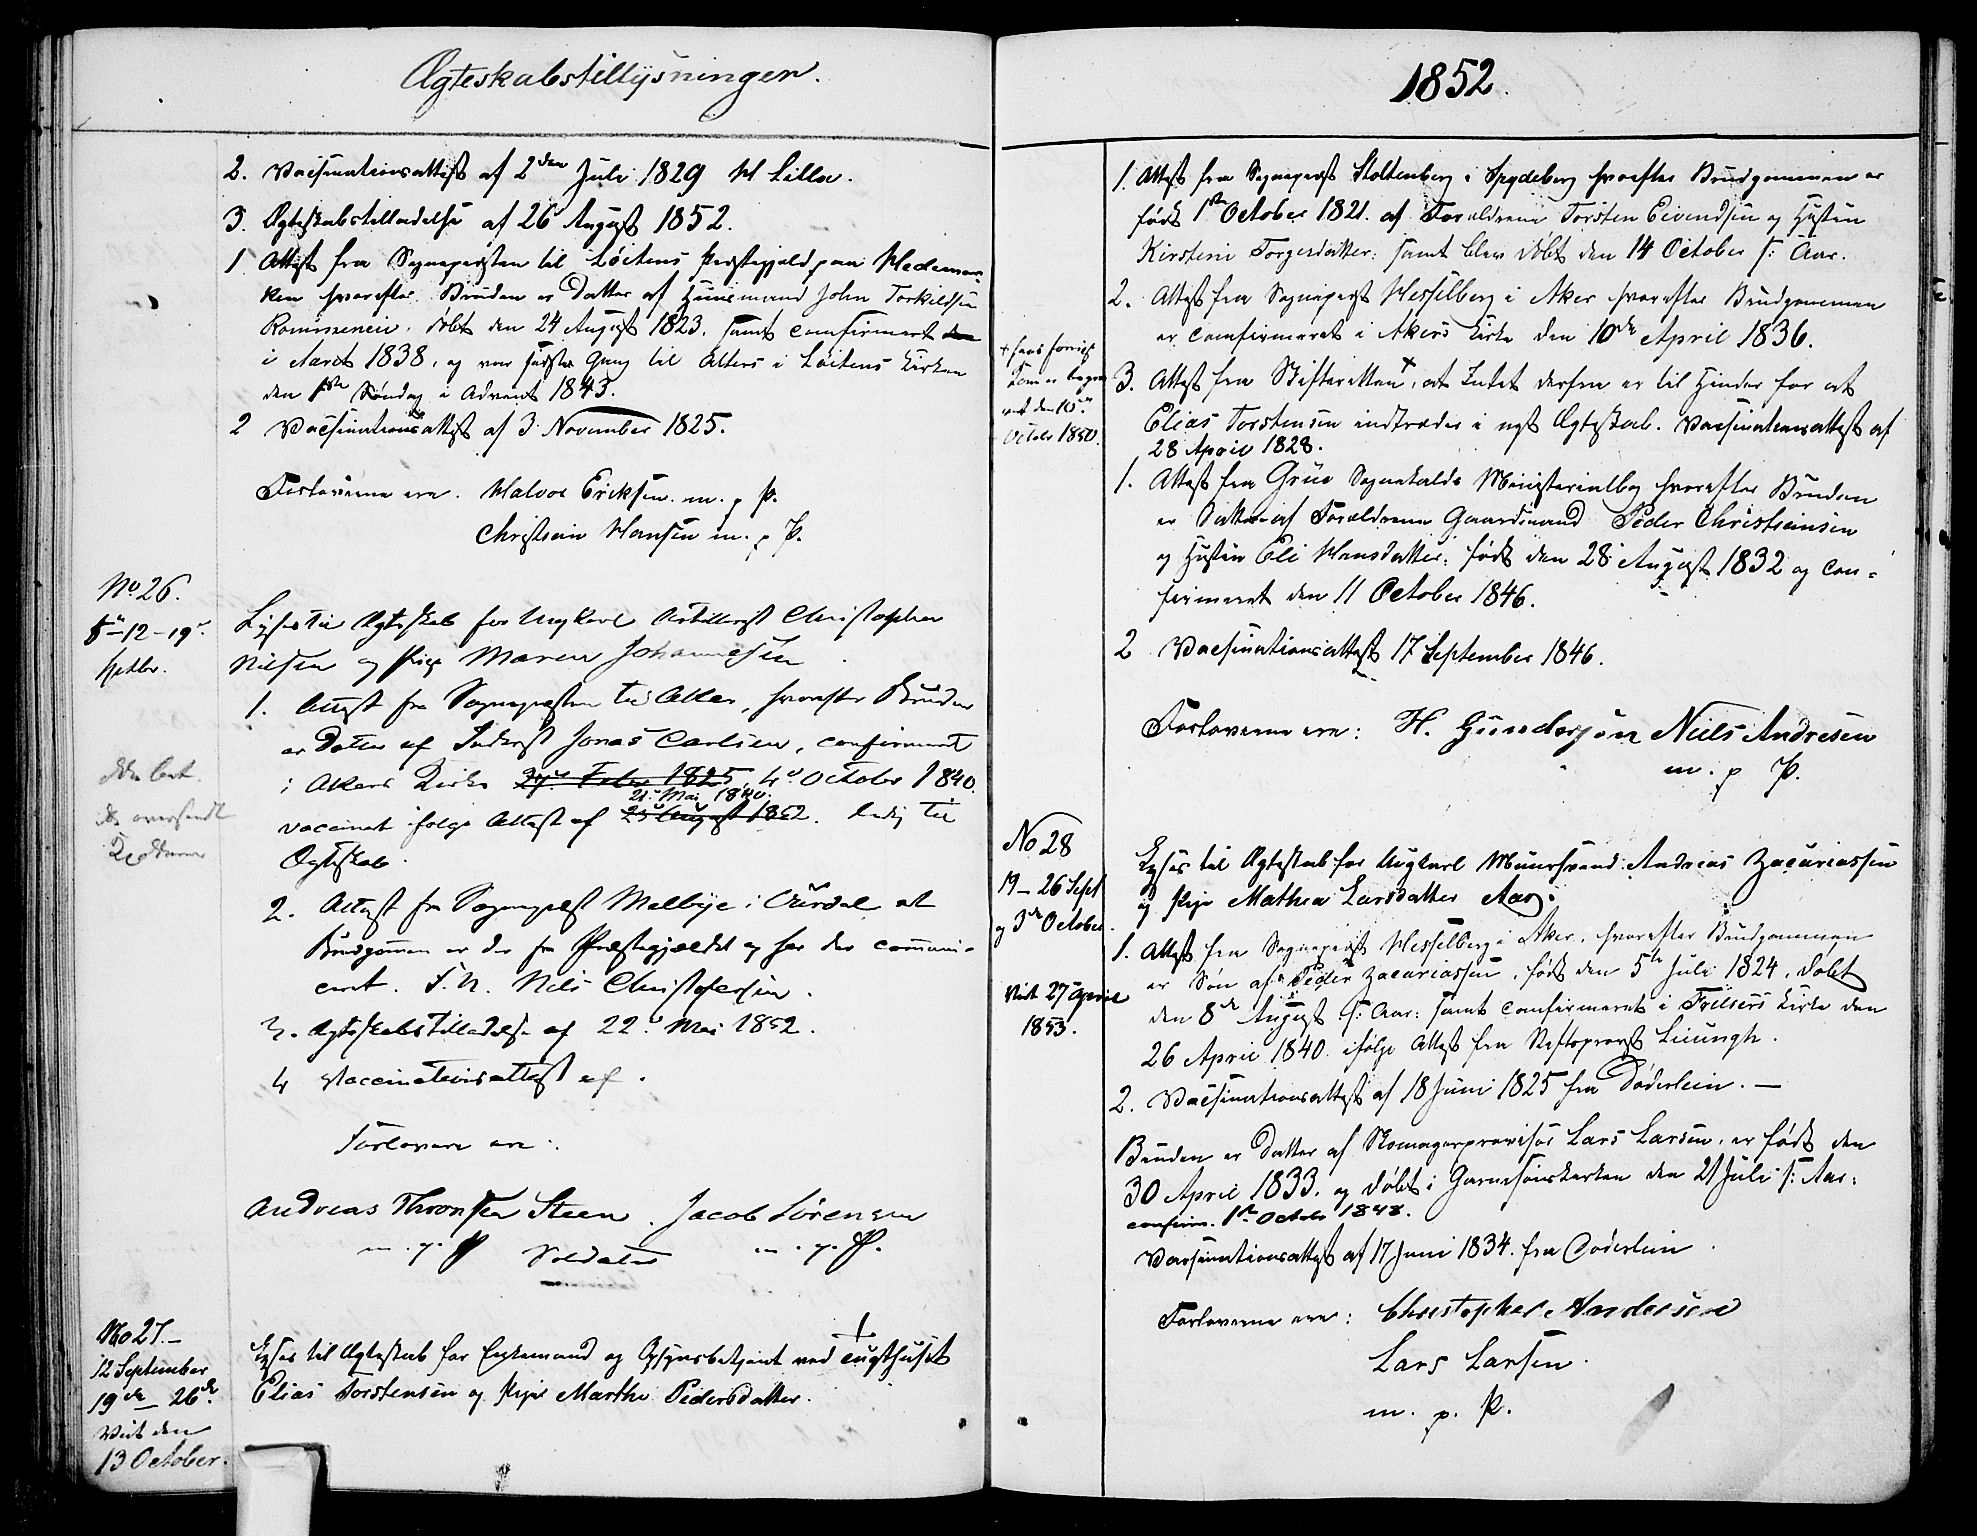 Ægteskabstillysninger.
2. Vaccinationsattest af 2den Juli 1829 H Lilla.
3. Ægteskabstilladelse af 26 August 1852.
1 Attest fra Sognepresten til Löitens Præstegjeld paa Hedemar-
ken hvorefter Bruden er Datter af Huusmand John Torkildsen
döbt den 24 August 1823. samt confirmeret
i Aaret 1838, og var sidste Gang til Alters i Löitens Kirke
den 1ste Söndag i Advent 1843.
2 Vaccinationsattest af 3 November 1825.
Forloverne ere. Halvor Eriksen m. p P.
Christian Hansen m. p P.
No 26.
5te-12-19de
Septbr.
Lyses til Ægteskab for Ungkarl Artillerist Christopher
Nilsen og Pige Maren Johannesen
1. Attest fra Sognepresten til Aker, hvorefter Bruden
er Datter af Inderst Jonas Carlsen, confirmeret
i Akers Kirke 27de Febr 1825, 4de October 1840.
21de Mai 1840.
vaccineret ifølge Attest af 25de August 1852. ledig til
Ægteskab.
oversendt
2. Attest fra Sognepræst Melbye i Vürdal at
Brudgommen er der fra Præstegjældet og har der communi-
ceret. S.N. Nils Christophersen.
3. Ægteskabstilladelse af 22de Mai 1852.
4 Vaccinationsattest af .
Forlovere ere:
Andreas Thronsen Steen. Jacob Sörensen
m. p. P Soldater m. p. P.
No 27.-
12 September
19de - 26de.
Viet den
13 October.
Lyses til Ægteskab for Enkemand og Opsynsbetjent ved Tugthuset
Elias Torstensen og Pige Marthe Pedersdatter.
1852.
1. Attest fra Sognepræst Stoltenberg i Spydeberg hvorefter Brudgommen er
födt 1ste October 1821. af Forældrene Torsten Eivendsen og Hustru
Kirstine Torgersdatter. samt blev döbt den 14 October s: Aar.
2. Attest fra Sognepræst Hesselberg i Aker hvorefter Brudgommen
er confirmeret i Akers Kirke den 10de April 1836.
+ hans forrige
Kone er begra-
vet den 10de
October 1850.
3. Attest fra Stiftsretten +, at Intet derfra er til Hinder for at
Elias Torstensen indtræder i nyt Ægteskab. Vaccinationsattest af
28 April 1828.
1. Attest fra Grue Sognekalds Ministerialbog hvorefter Bruden
er Datter af Forældrene Gaardmand Peder Christiansen
og Hustru Eli Hansdatter, födt den 28 August 1832 og con-
firmeret den 11 October 1846.
2 Vaccinationsattest 17 September 1846.
Forloverne ere: H. Gundersen Niels Andresen
m. p P.
No 28
19- 26 Sept
og 3de October.
Viet 27 April
1853.
Lyses til Ægteskab for Ungkarl Muursvend Andreas Zacariassen
og Pige Mathea Larsdatter Aas.
1. Attest fra Sognepræst Hesselberg i Aker, hvorefter Brudgommen
er Sön af Peder Zacariassen, födt den 5te Juli 1824, döbt
den 8de August s: Aar: samt confirmeret i Frelsers Kirke den
26 April 1840 ifölge Attest fra Stiftsprovst
2. Vaccinationsattest af 18 Juni 1825 fra Döderlein. -
Bruden er Datter af Skomagerprovisor Lars Larsen, er födt den
30 April 1833. og döbt i Garnisonskirken den 21 Juli s: Aar:
confirm. 1ste Octobr 1848.
Vaccinationsattest af 17 Juni 1834. fra Döderlein.
Forloverne ere: Christopher Andersen
Lars Larsen.
m. p. P.